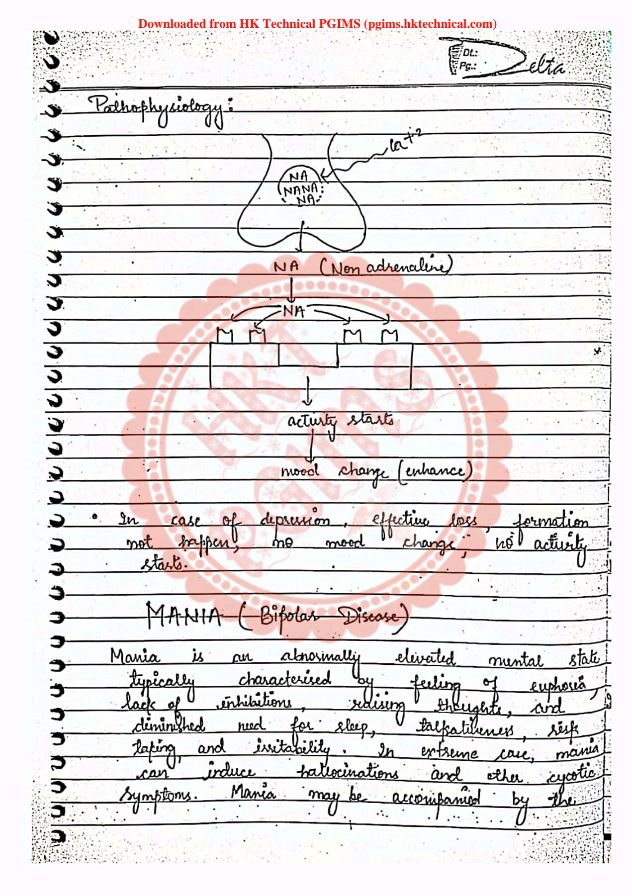 Downloaded from HK Technical PGIMS (pgims.hktechnical.com)
Dt.:
Pg.:
Delta
Pathophysiology:
Ca+2
NA
NANA
NA
NA (Non adrenaline)
NA
activity starts
mood change (enhance)
• In case of depression, effective loss, formation
not happen, no mood change, no activity
starts.
MANIA (Bipolar Disease)
Mania is an abnormally elevated mental state
typically characterised by feeling of euphorea,
lack of inhibitions, raising thoughts, and
diminished need for sleep, talkativeness, risk
taping and irritability. In extreme case, mania
can induce hallocinations and other cycotic
symptoms. Mania may be accompanied by the
HKT
PGIMS